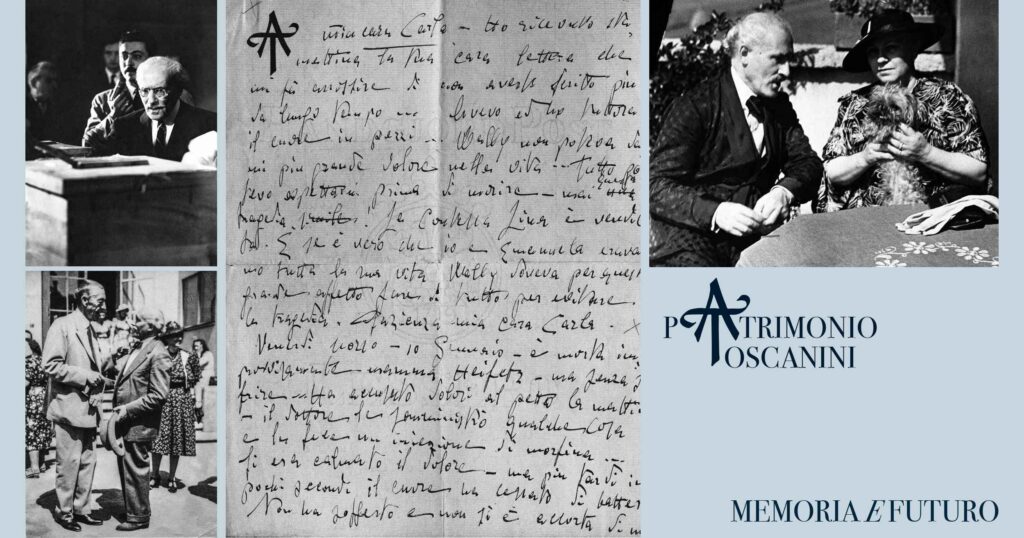 mia cara Carla - Ho ricevuto sta
mattina la tua cara lettera che
mi fa arrossire di non averti scritto più
da lungo tempo
il cuore in pezzi ... Wally non poteva
mi più grande dolore nella vita ... tutto
aspettarmi prima di morire - mai questa
tragedia! Se Contessa Lina è
E se è vero che io e Emanuela
tutta la sua vita Wally doveva per quest
grande affetto fare di tutto per evitare
la tragedia. Pazienza mia cara Carla.
Venerdì - 10 Gennaio - è morta im
provvisamente mamma Heifetz - ma senza
frire - Ha accusato dolori al petto la matti
- il dottore le somministrò qualche cosa
e le fece un iniezione di morfina ...
Si era calmato il dolore - ma più tardi in
pochi secondi il cuore ha cessato di batter
Non ha sofferto e non si è accorta di
PATRIMONIO
TOSCANINI
MEMORIA E FUTURO